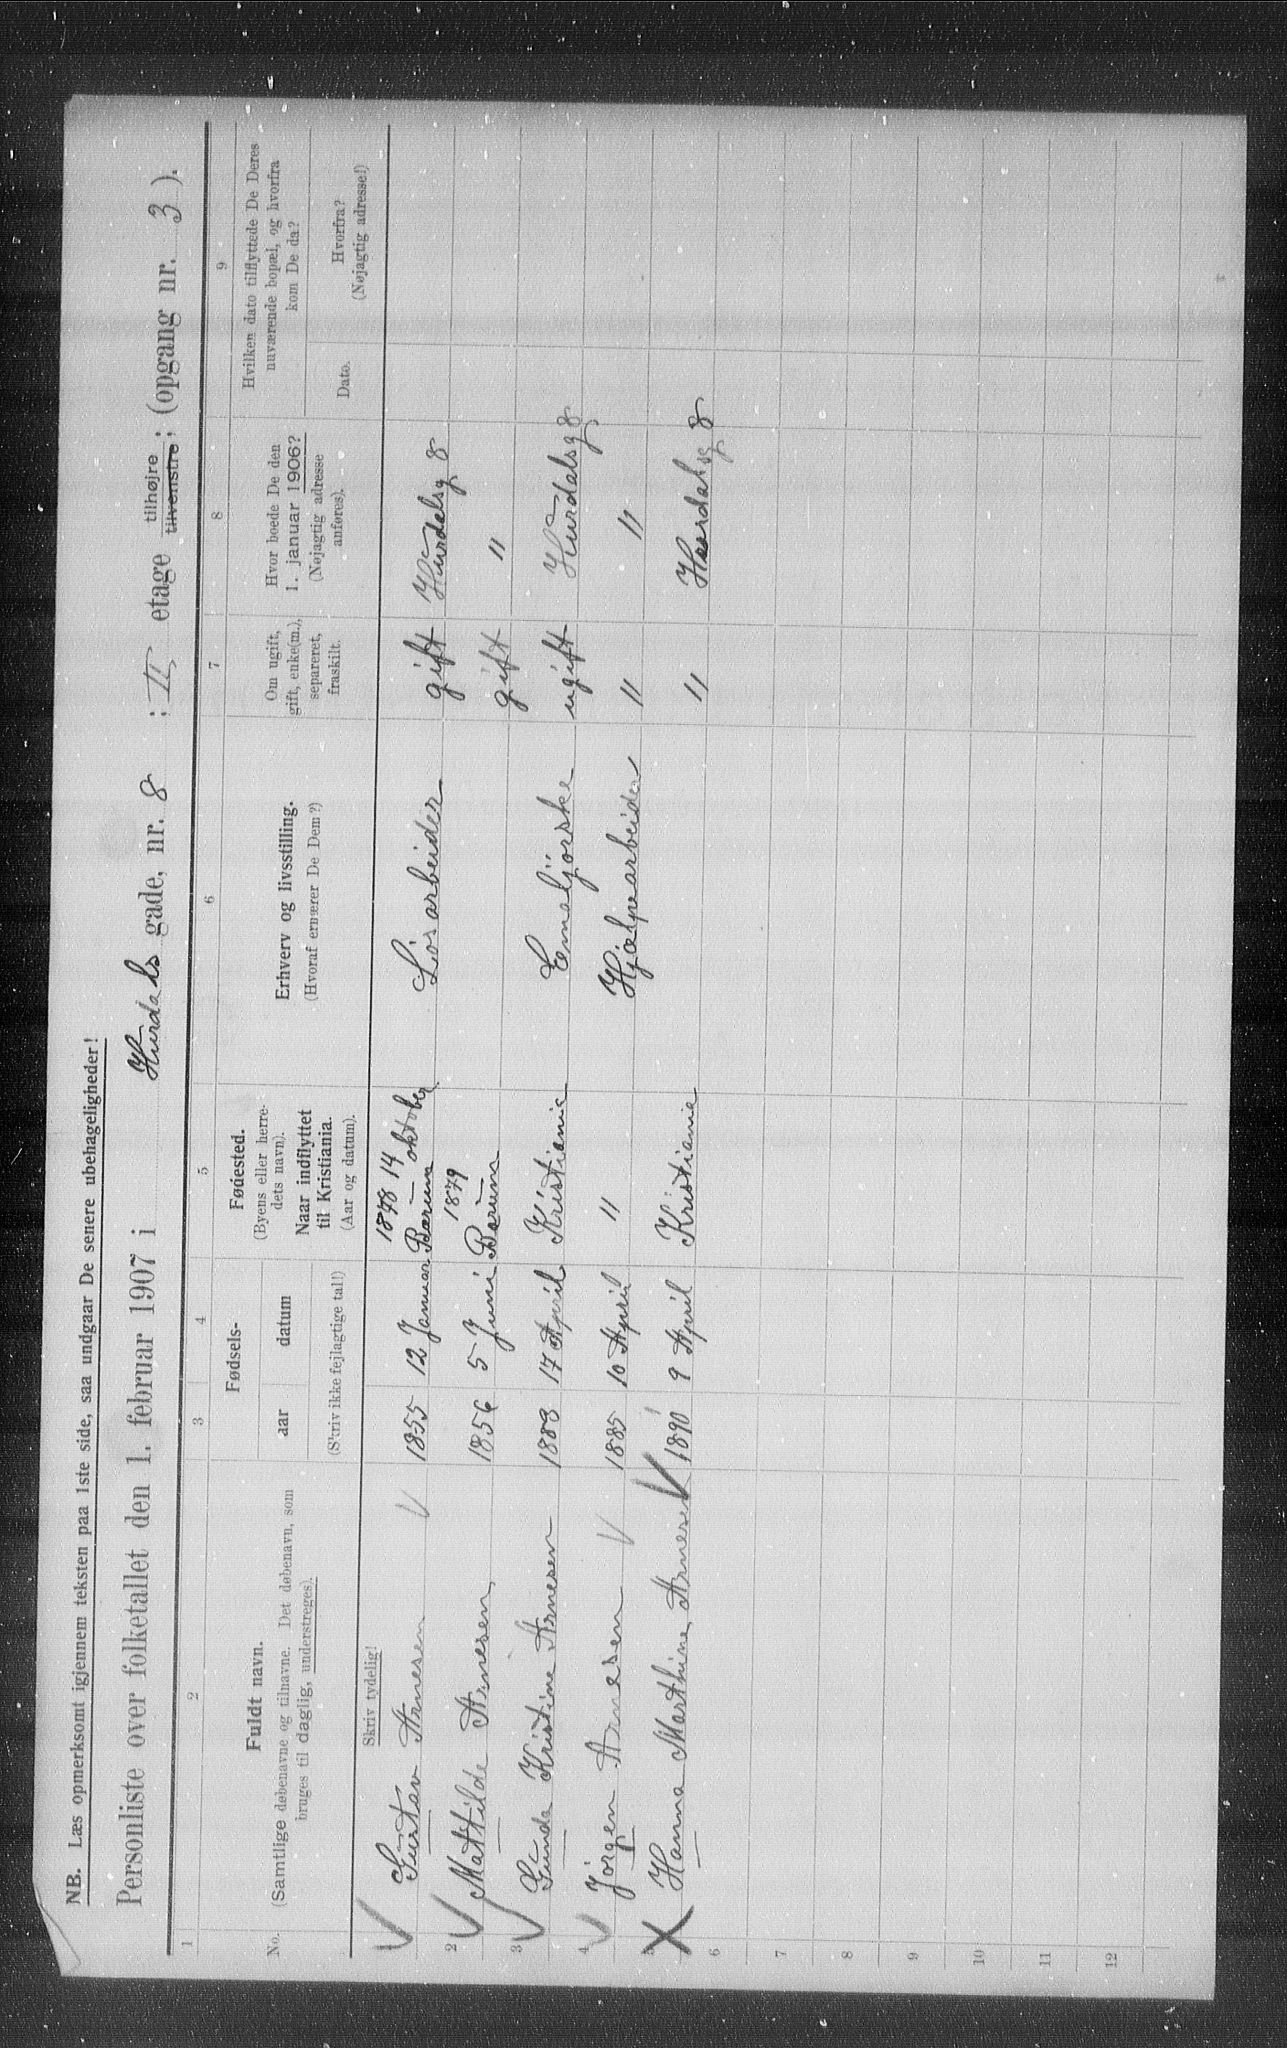 NB. Læs opmerksomt igjennem teksten paa 1ste side, saa undgaar De senere ubehageligheder!
Personliste over folketallet den 1. februar 1907 i Hurdals gade, nr. 8 ; II etage tilhøjre tilvenstre; (opgang nr. 3).
1 2 3 4 5 6 7 8 9
No.
Fuldt navn.
(Samtlige døbenavne og tilnavne. Det døbenavn, som
bruges til daglig, understreges).
Fødsels-
aar datum
(Skriv ikke fejlagtige tal!)
Fødested.
(Byens eller herre-
dets navn).
Naar indflyttet
til Kristiania.
(Aar og datum).
Erhverv og livsstilling.
(Hvoraf ernærer De Dem?)
Om ugift,
gift, enke(m.),
separeret,
fraskilt.
Hvor boede De den
1. januar 1906?
(Nøjagtig adresse
anføres).
Hvilken dato tilflyttede De Deres
nuværende bopæl, og hvorfra
kom De da?
Dato.
Hvorfra?
(Nøjagtig adresse!)
Skriv tydelig!
1878 14 oktober
Gustav Arnesen 1855 12 Januar Bærum Lösarbeider gift Hurdalsg 8
1879
2 Mattilde Arnesen 1856 5 Juni Bærum gift "
3 Gunda Kristine Arnesen 1883 17 April Kristiania Emaljörske ugift Hurdalsg 8
4 Jörgen Arnesen 1885 10 April " Hjælpearbeider " "
5 Hanna Marthine Arnesen 1890 9 April Kristiania " Hurdalsg 8
6
7
8
9
10
11
12